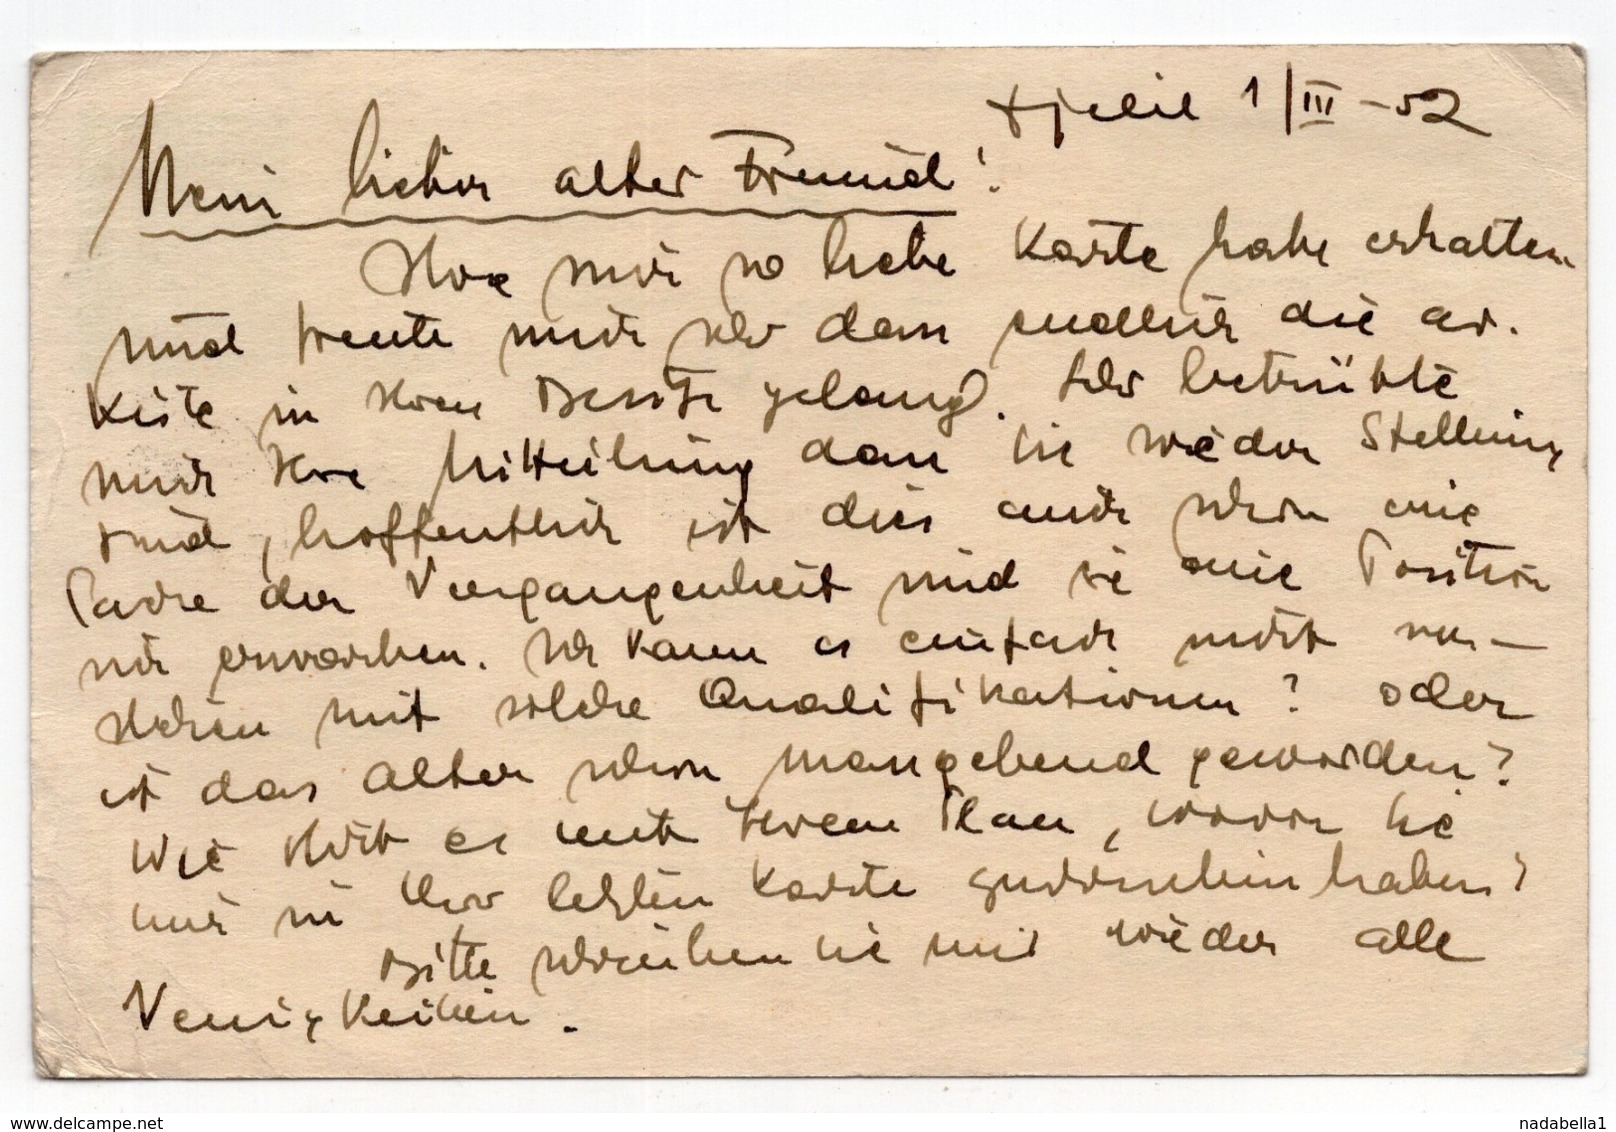 1/III-52
Mein lieber alter Freund!
Ihre mir so liebe Karte habe erhalten
und freute mich sehr dass endlich die
Kiste in Ihren Besitz gelang. Sehr betrübte
mich Ihre Mitteilung dass Sie wieder Stellung
sind, hoffentlich ist dies auch schon eine
der Vergangenheit und Sie eine Position
erworben. Wie kann es einfach nicht
mit solche Qualifikationen? oder
ist das Alter schon massgebend geworden?
Wie steht es mit Ihrem Plan, wovon Sie
mir in Ihr letzten Karte geschrieben haben?
Bitte schreiben Sie mir wieder alle
Neuigkeiten.
delcampe.net
nadabella1